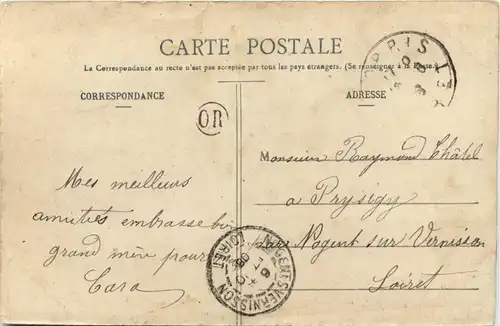 CARTE POSTALE
La Correspondance au recto n'est pas acceptée par tous les pays étrangers. (Se renseigner à la Poste.)
CORRESPONDANCE
ADRESSE
OR
Mes meilleurs
amitiés embrasse
grand mère pour
Cara
Monsieur Raymond Châtel
à Pressigny
par Nogent sur Vernisson
Loiret
NOGENT-S-VERNISSON
LOIRET